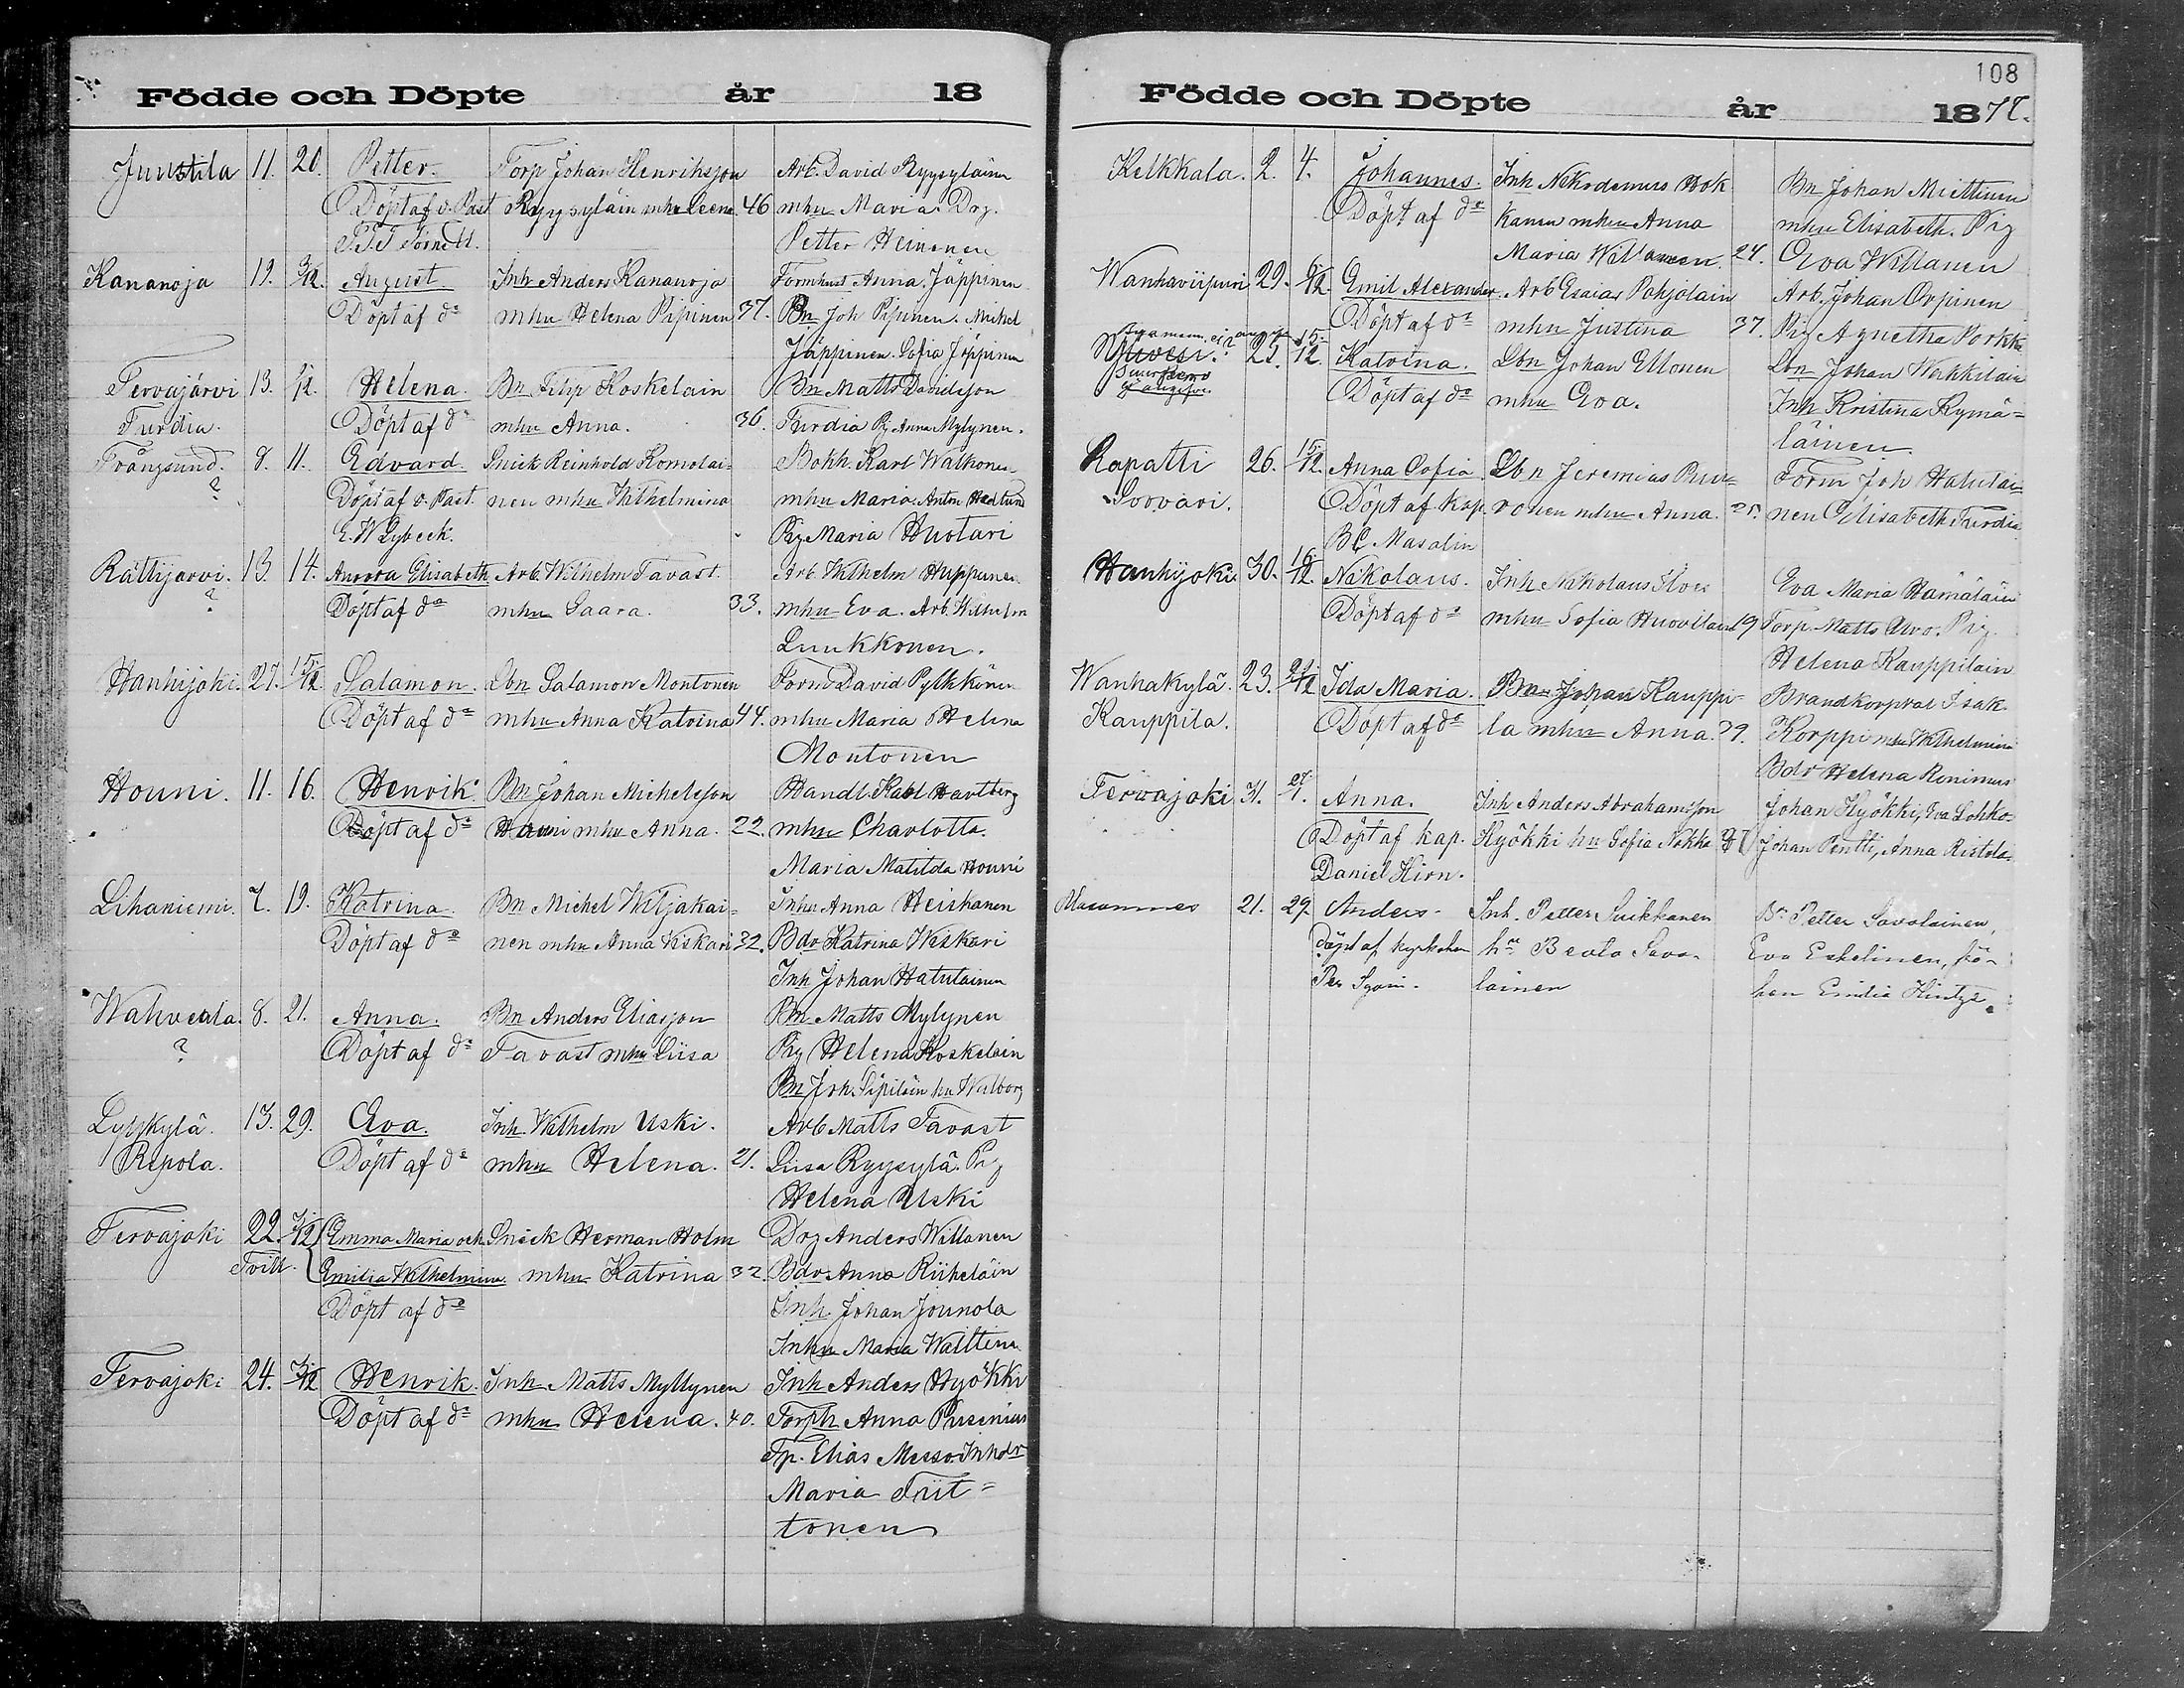 Födde och Döpte år 18
Junttila 11. 20. Petter. Torp Johan Henriksson Arb. David Ryysyläinen
Döpt af v. Past Ryysyläin mhu Leena. 46 mhu Maria. Drg.
Petter Heinonen
Kananoja 19. 3/12. August Inh Anders Kananoja Formhust Anna Jäppinen
Döpt af d:o mhu Helena Pipinen 37. Bn Joh Pipinen. Mikel
Jäppinen. Sofia Jäppinen
Tervajärvi 13. Helena. Bn Filip Koskelain Bn Matts Davidsson
Turdia. Döpt af d:o mhu Anna. 36. Turdia Pig Anna Mylynen.
Trångsund. 8. 11. Edvard Snick Reinhold Komolai= Bokh. Karl Walkonen
? Döpt af v. Past. nen mhu Wilhelmina mhu Maria. Anton Hedlund
E. W. Lybeck. Pig Maria Huotari
Rättijärvi. 13. 14. Aurora Elisabeth Arb. Wilhelm Tavast. Arb. Wilhelm Huppunen
? Döpt af d:o mhu Saara. 33. mhu Eva. Arb. Wilhelm
Luukkonen.
Hanhijoki. 27. 15/12 Salamon. Lbn Salamon Montonen Form David Pylkkönen
Döpt af d:o mhu Anna Katrina 44. mhu Maria Helena
Montonen
Houni. 11. 16. Henrik Bn Johan Michelsson Handl. Karl Hartberg
Döpt af d:o Houni mhu Anna. 22. mhu Charlotta.
Maria Matilda Houni
Lihaniemi. 7. 19. Katrina. Bn Michel Wiljakai= Inhu Anna Heiskanen
Döpt af d:o nen mhu Anna Kiskari 32. Bdr Katrina Kiskari
Inh Johan Hatulainen
Wahviala. 8. 21. Anna. Bn Anders Eliasson Bn Matts Mylynen
? Döpt af d:o Tavast mhu Liisa Pig Helena Koskelain
Bn Joh. Sipiläin hu Walborg
Lyykylä. 13. 29. Eva. Inh. Wilhelm Uski. Arb Matts Tavast
Repola. Döpt af d:o mhu Helena. 21. Liisa Ryysylä. Pig
Helena Uski
Tervajoki 22. Emma Maria och Snick Herman Holm Drg Anders Willanen
Tvill. Emilia Wilhelmina mhu Katrina 32. Bdr Anna Riikeläin
Döpt af d:o Inh Johan Jounola
Inhu Maria Walttinen
Tervajoki 24. Henrik. Inh Matts Myllynen Inh Anders Hyökki
Döpt af d:o mhu Helena. 40. Torph Anna Pusenius
Tp. Elias Messo Inhdr
Maria Triit=
tonen
108
Födde och Döpte år 1878.
Kelkkala. 2. 4. Johannes. Inh Nikodemus Hok Bn Johan Miettinen
Döpt af d:o kanen mhu Anna mhu Elisabeth. Pig
Maria Willanen. 24. Eva Willanen
Wanhaviipuri 29. 6/12 Emil Alexander Arb Esaias Pohjolain Arb. Johan Orpinen
Döpt af d:o mhu Justina 37. Pig Agnetha Porkka
25. 15/12. Katrina. Lbn Johan Ellonen Lbn Johan Warkkilain
Döpt af d:o mhu Eva. Inh Kristina Kymä=
läinen.
Rapatti 26. 15/12. Anna Sofia Lbn Jeremias Puu= Form Joh Hatulai=
Sorvari. Döpt af Kap. ronen mhu Anna. 25. nen Elisabeth Turdia
B C Masalin
Hanhijoki 30. 16/12. Nikolaus. Inh Nikolaus Ilves Eva Maria Hämäläin
Döpt af d:o mhu Sofia Huovilain 19 Torp. Matts Arvo. Pig.
Helena Kauppilain
Wanhakylä. 23. 21/12 Ida Maria. Bn Johan Kauppi= Brandkorpral Isak
Kauppila. Döpt af d:o la mhu Anna. 39. Korppi mhu Wilhelmina
Bdr Helena Ronimus
Tervajoki 31. Anna. Inh Anders Abrahamsson Johan Hyökki, Eva Lohko.
Döpt af kap. Hyökki hu Sofia Nokka Johan Pentti, Anna Ristola.
Daniel Hirn.
21. 29 Anders. Inh. Petter Suikkanen Bn Petter Savolainen,
Döpt af kyrkoh hu Beata Savo- Eva Eskelinen, frö-
ken Emilia Hintze.
lainen